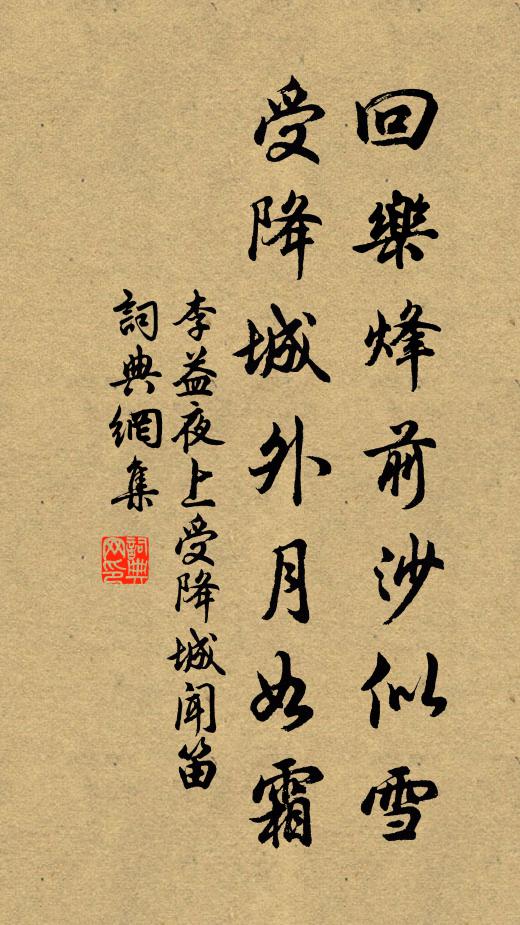 回樂烽前沙似雪
受降城外月如霜
李益夜上受降城聞笛
詞典網集
詞典
网印